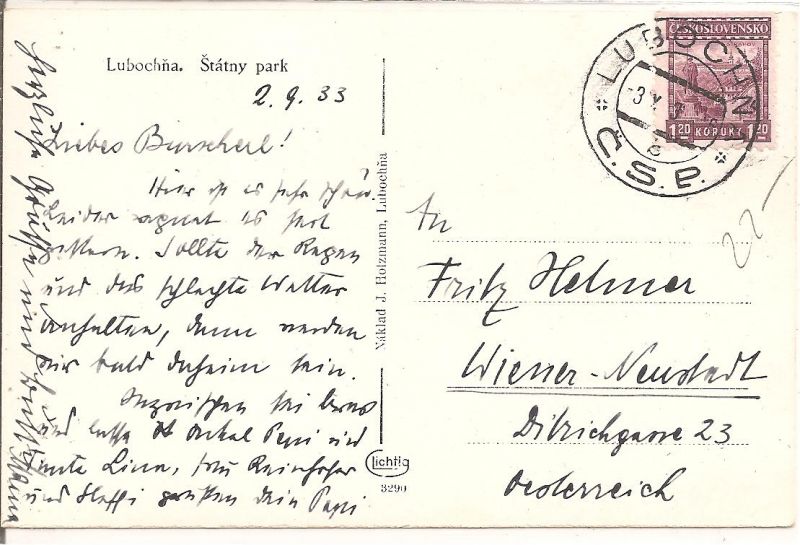 Lubochňa. Štátny park
2.9.33
Liebes Burscherl!
Hier ist es sehr schön.
Leider regnet es seit
gestern. Sollte der Regen
und das schlechte Wetter
anhalten, dann werden
wir bald daheim sein.
Inzwischen sei brav
und Onkel Pepi und
Tante Lina, Frau
und Steffi grüßen Dein Papi
Herzliche Grüße
Mama
Náklad J. Holzmann, Lubochňa
Lichtig
3290
ČESKOSLOVENSKO
1.20 KORUNY 1.20
LUBOCHŇA
Č.S.P.
An
Fritz Helmer
Wiener-Neustadt
Ditrichgasse 23
Oesterreich
22-